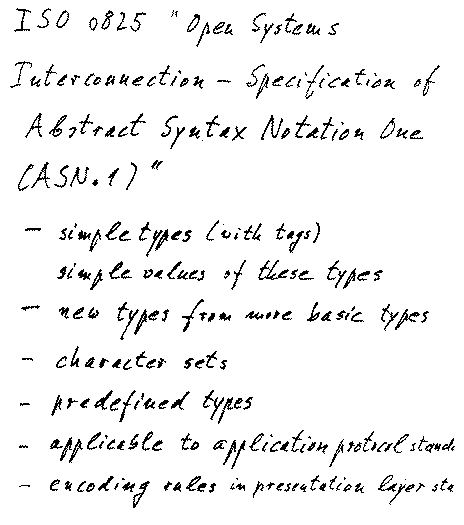 ISO 0825 "Open Systems
Interconnection - Specification of
Abstract Syntax Notation One
(ASN.1)"
- simple types (with tags)
simple values of these types
- new types from more basic types
- character sets
- predefined types
- applicable to application protocol stand
- encoding rules in presentation layer sta